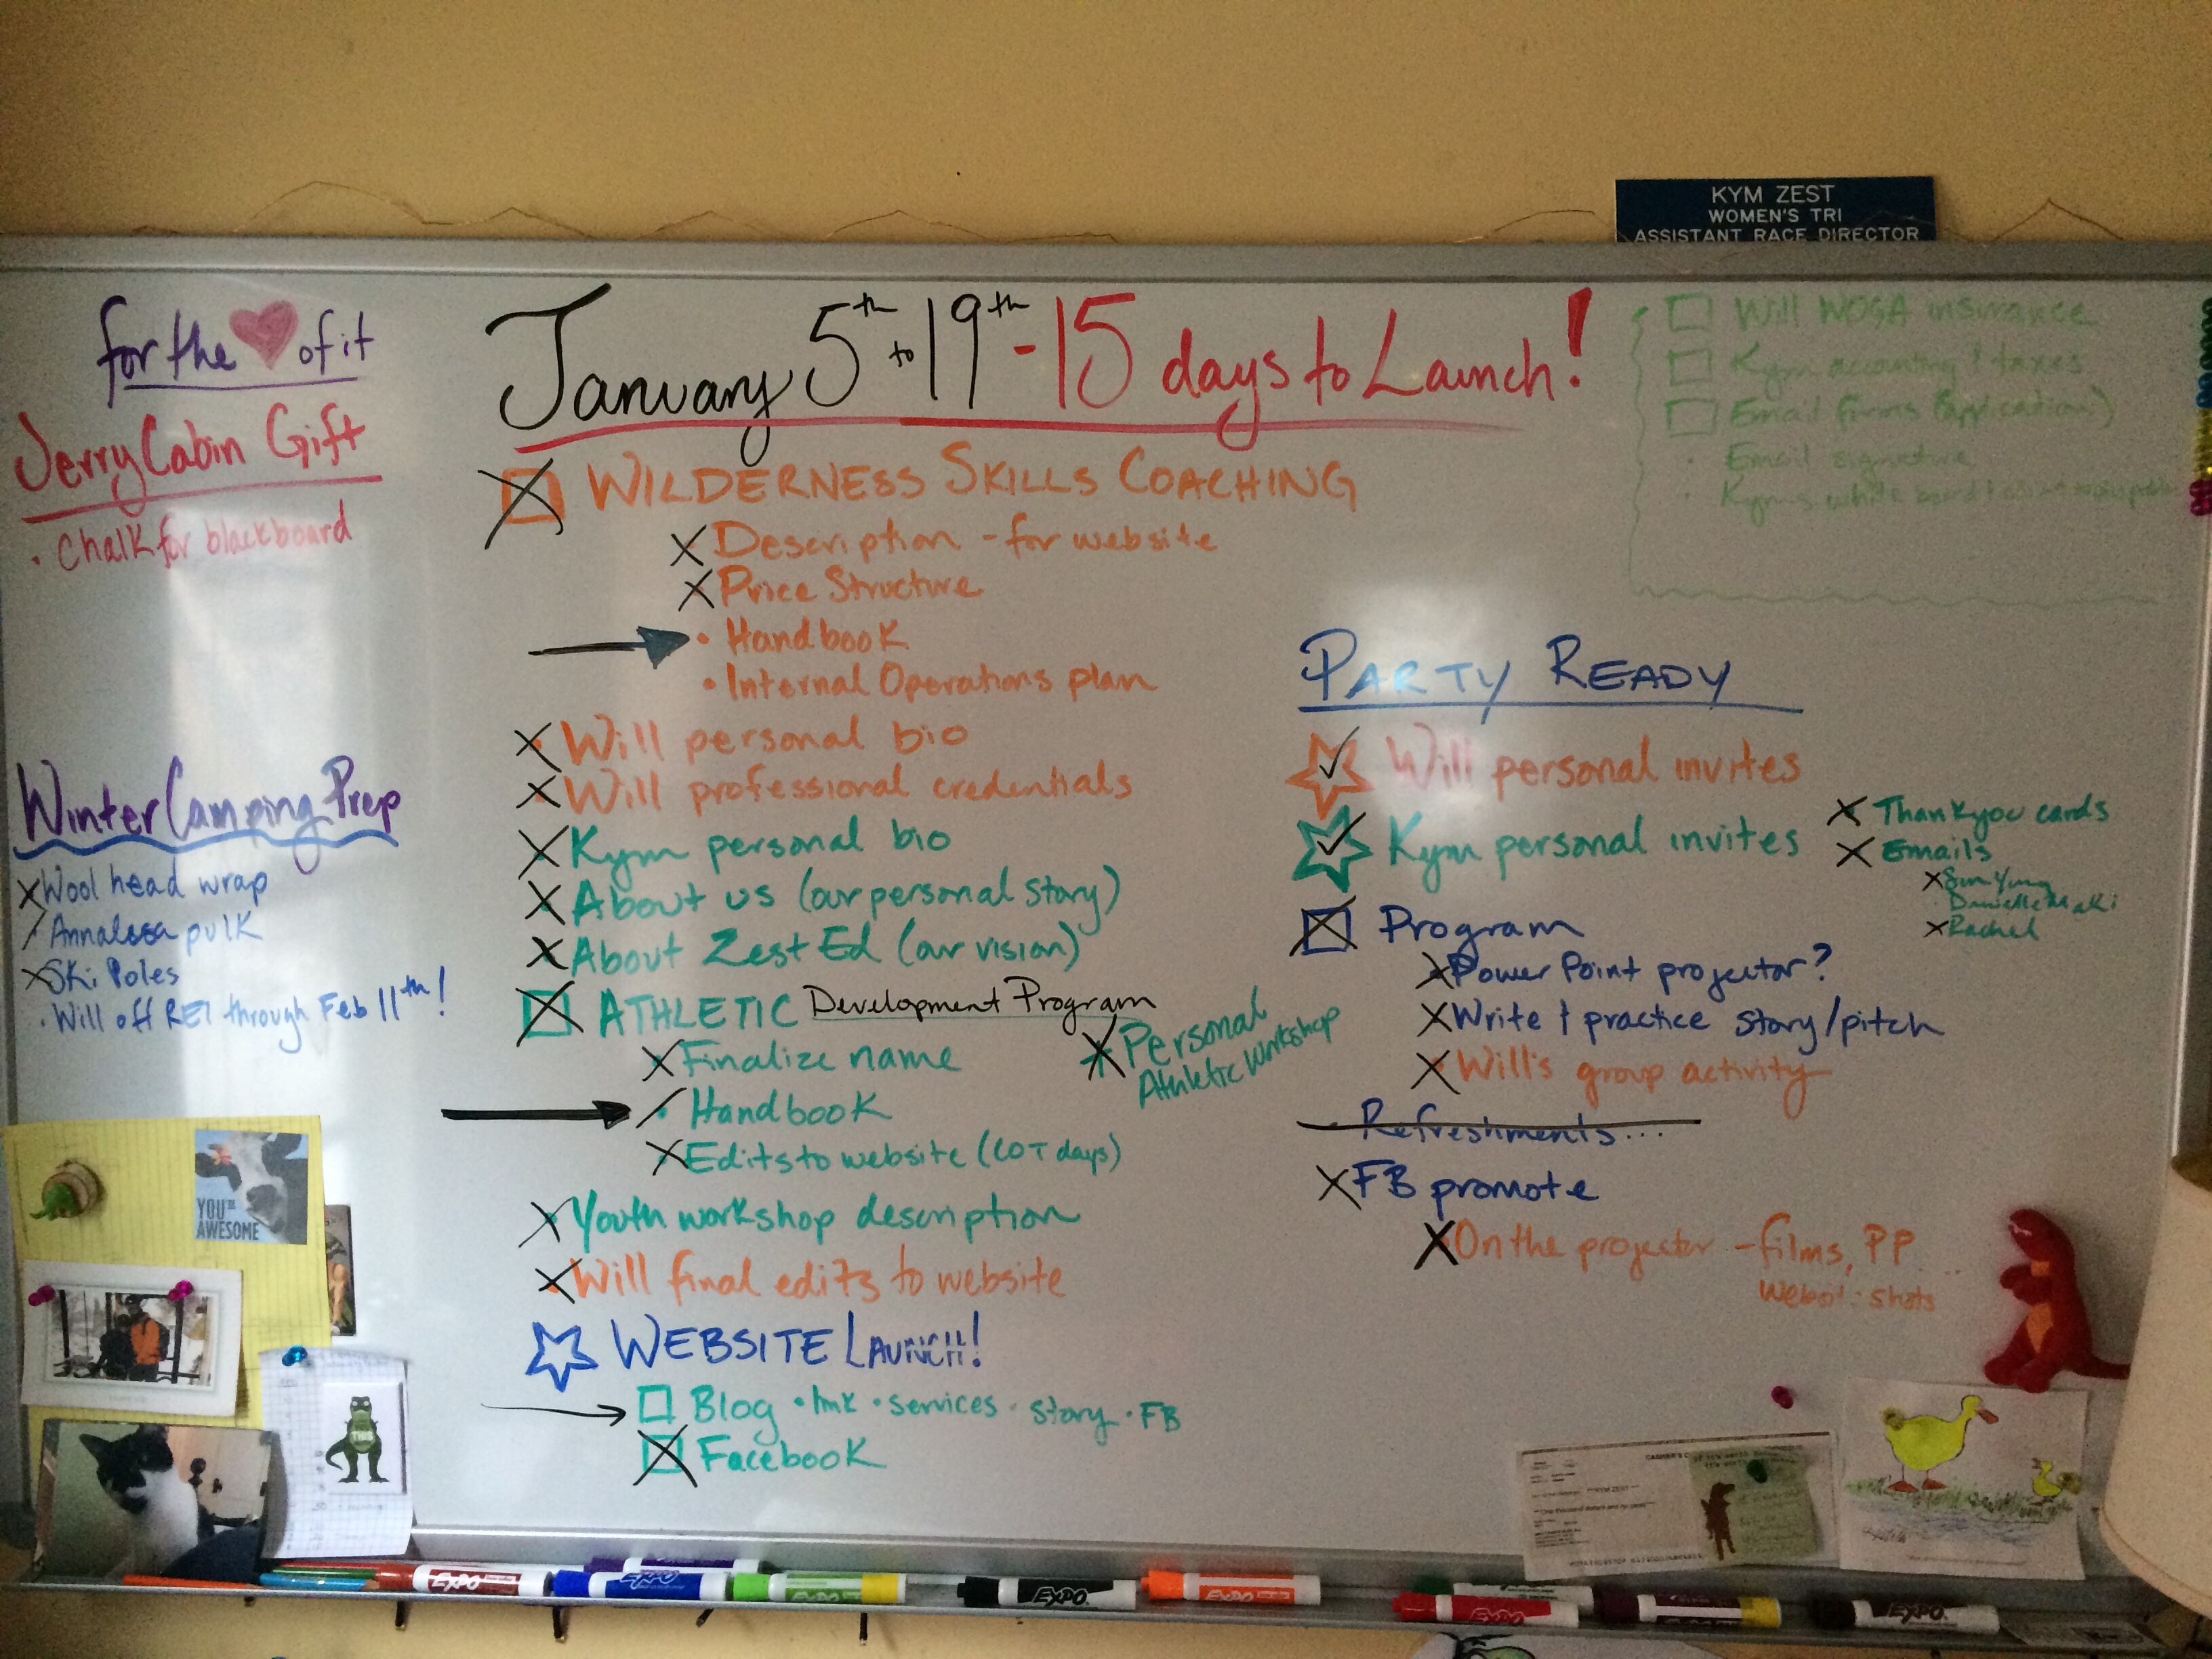 KYM ZEST
WOMEN'S TRI
ASSISTANT RACE DIRECTOR
for the of it
Jerry Cabin Gift
• Chalk for blackboard
Winter Camping Prep
Wool head wrap
Annaleesa pulk
Ski Poles
• Will off REI through Feb 11th!
YOU'RE
AWESOME
THIS
January 5th to 19th - 15 days to Launch!
WILDERNESS SKILLS COACHING
Description - for website
Price Structure
• Handbook
• Internal Operations plan
Will personal bio
Will professional credentials
Kym personal bio
About us (our personal story)
About Zest Ed (our vision)
ATHLETIC Development Program
Personal
Athletic Workshop
Finalize name
• Handbook
Edits to website (LOT days)
Youth workshop description
Will final edits to website
WEBSITE LAUNCH!
Blog • link • services • story • FB
Facebook
Will WOGA insurance
Kym accounting & taxes
Email forms (applications)
• Email signature
• Kym's white board
PARTY READY
Will personal invites
Kym personal invites
Thank you cards
Emails
Sun Yung
Danielle Maki
Rachel
Program
Power Point projector?
Write & practice story/pitch
Will's group activity
• Refreshments...
FB promote
On the projector - films, PP
shots
CASHIER'S
KYM ZEST
EXPO
EXPO
EXPO
EXPO
EXPO